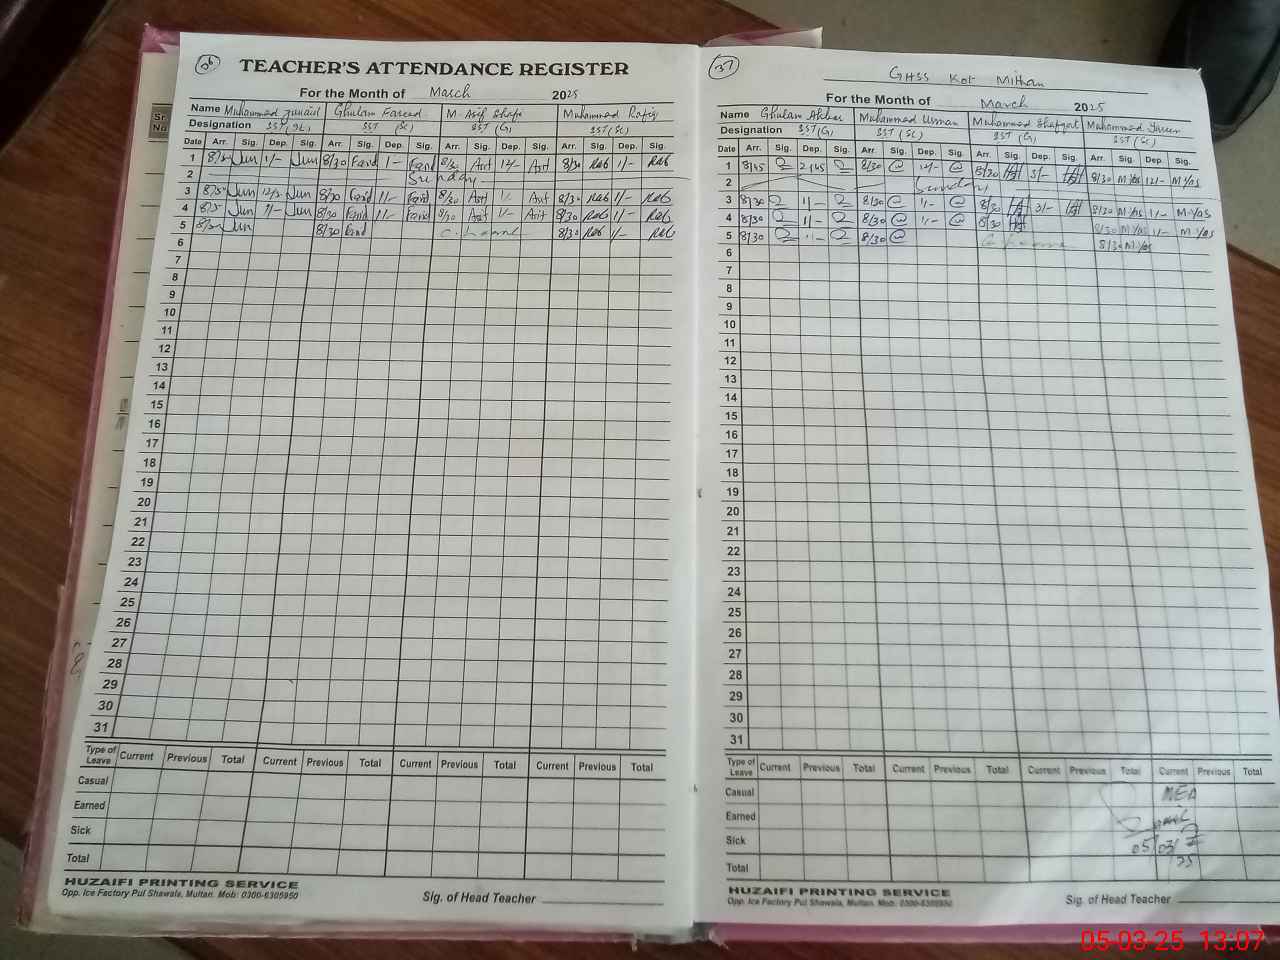 36
TEACHER'S ATTENDANCE REGISTER
For the Month of March 2025
Name Muhammad Junaid Ghulam Fareed M. Asif Shafi Muhammad Rafiq
Designation SST (Sc) SST (Sc) SST (G) SST (Sc)
Date Arr. Sig. Dep. Sig. Arr. Sig. Dep. Sig. Arr. Sig. Dep. Sig. Arr. Sig. Dep. Sig.
1 Jun 1/- Jun 8/30 Farid 1/- Farid 8/30 Asif 12/- Asif 8/30 1/-
2 Sunday
3 Jun Jun 8/30 Farid 1/- Farid 8/30 Asif 1/- Asif 8/30 1/-
4 Jun 1/- Jun 8/30 Farid 1/- Farid 8/30 Asif 1/- Asif 8/30 1/-
5 Jun 8/30 Farid 8/30 1/-
6
7
8
9
10
11
12
13
14
15
16
17
18
19
20
21
22
23
24
25
26
27
28
29
30
31
Type of Leave Current Previous Total Current Previous Total Current Previous Total Current Previous Total
Casual
Earned
Sick
Total
HUZAIFI PRINTING SERVICE
Opp. Ice Factory Pul Shawala, Multan. Mob: 0300-6305950
Sig. of Head Teacher
37
GHSS Kot Mithan
For the Month of March 2025
Name Ghulam Akbar Muhammad Usman Muhammad Shafqat Muhammad Yaseen
Designation SST (G) SST (Sc) SST (G) SST (Sc)
Date Arr. Sig. Dep. Sig. Arr Sig. Dep. Sig. Arr. Sig. Dep. Sig. Arr. Sig. Dep. Sig.
1 8/45 2/45 8/30 12/- 8/30 3/- 8/30 M/as 12/- M/as
2 Sunday
3 8/30 1/- 8/30 1/- 8/30 3/- 8/30 M/as 1/- M/as
4 8/30 1/- 8/30 1/- 8/30 8/30 M/as 1/- M/as
5 8/30 1/- 8/30 8/30 M/as
6
7
8
9
10
11
12
13
14
15
16
17
18
19
20
21
22
23
24
25
26
27
28
29
30
31
Type of Leave Current Previous Total Current Previous Total Current Previous Total Current Previous Total
Casual
Earned
Sick
Total
MEA
05/03/25
HUZAIFI PRINTING SERVICE
Opp. Ice Factory Pul Shawala, Multan. Mob: 0300-6305950
Sig. of Head Teacher
Sr. No
05-03-25 13:07